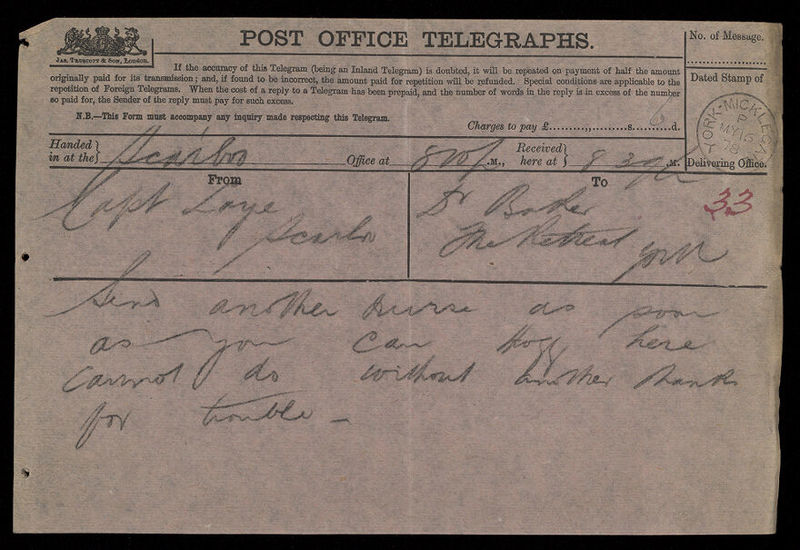 POST OFFICE TELEGRAPHS.
No. of Message.
JAS. TRUSCOTT & SON, LONDON.
If the accuracy of this Telegram (being an Inland Telegram) is doubted, it will be repeated on payment of half the amount
originally paid for its transmission; and, if found to be incorrect, the amount paid for repetition will be refunded. Special conditions are applicable to the
repetition of Foreign Telegrams. When the cost of a reply to a Telegram has been prepaid, and the number of words in the reply is in excess of the number
so paid for, the Sender of the reply must pay for such excess.
Dated Stamp of
N.B.—This Form must accompany any inquiry made respecting this Telegram.
YORK-MICKLEGATE
P
MY 16
78
Charges to pay £ s. d.
Handed in at the Scarbro Office at M., Received here at M. Delivering Office.
From
To
33
Capt Laye
Scarbro
Dr Baker
The Retreat
York
Send another nurse as soon
as you can Hogg here
cannot do without another thanks
for trouble —